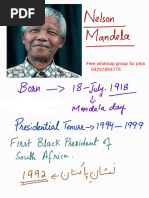 Nelson
Mandela
Free whatsap group for jobs
03257894775
Born → 18-July.1918
↓
Mandela day
Presidential Tenure → 1994-1999
First Black President of
South Africa.
1992 ← نشان پاکستان